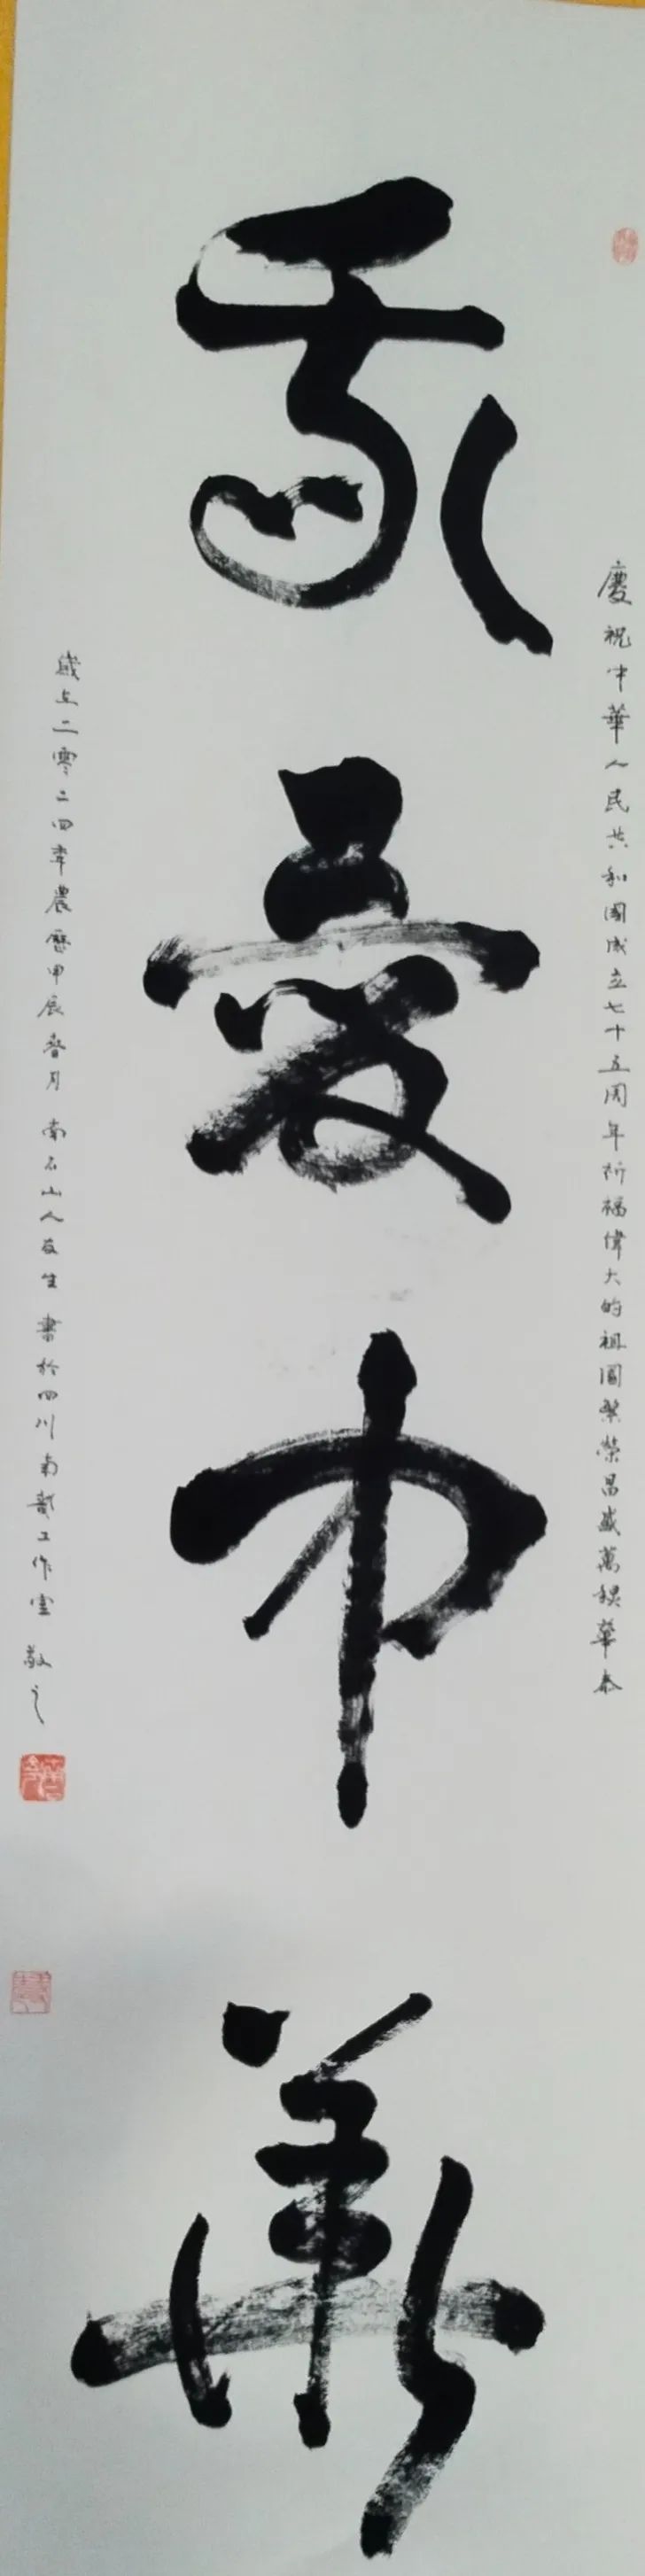 慶祝中華人民共和國成立七十五周年祈福偉大的祖國繁榮昌盛萬棋華泰
我愛中華
歲在二零二四年農曆甲辰春月 南石山人友生 書於四川南部工作室 敬之